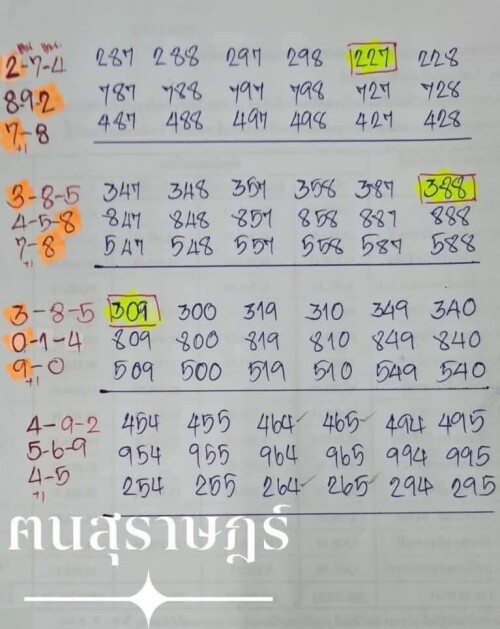 2-7-4 287 288 297 298 227 228
8-9-2 787 788 797 798 727 728
7-8 487 488 497 498 427 428
3-8-5 347 348 357 358 387 388
4-5-8 847 848 857 858 887 888
7-8 547 548 557 558 587 588
+1
3-8-5 309 300 319 310 349 340
0-1-4 809 800 819 810 849 840
9-0 509 500 519 510 549 540
+1
4-9-2 454 455 464 465 494 495
5-6-9 954 955 964 965 994 995
4-5 254 255 264 265 294 295
+1
ฅนสุราษฎร์